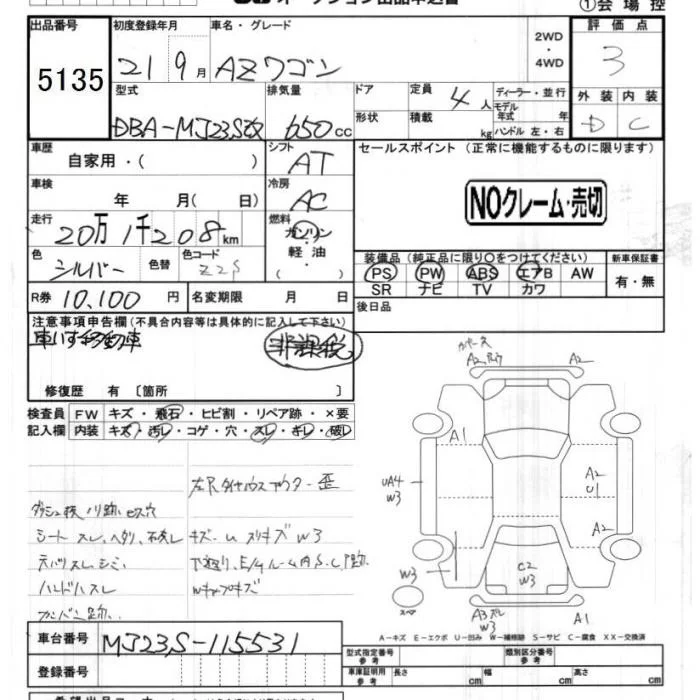 オークション出品申込書
①会場控
出品番号 初度登録年月 車名・グレード 2WD・4WD 評価点
5135 21 9月 AZワゴン 3
型式 排気量 ドア 定員 4人 ディーラー・並行 外装 内装
DBA-MJ23S改 650cc 形状 積載 kg モデル年式 年 D C
ハンドル 左・右
車歴 シフト セールスポイント (正常に機能するものに限ります)
自家用・( ) AT
車検 冷房 NOクレーム・売切
年 月( 日) AC
走行 燃料
20万1千208km ガソリン
軽油
装備品 (純正品に限り○をつけてください) 新車保証書
色 シルバー 色替 色コード Z2S
PS PW ABS エアB AW 有・無
SR ナビ TV カワ
R券 10,100円 名変期限 月 日 後日品
注意事項申告欄(不具合内容等は具体的に記入して下さい)
車いす移動車 非課税
修復歴 有 〔箇所 〕
検査員 FW キズ・飛石・ヒビ割・リペア跡・×要
記入欄 内装 キズ・汚レ・コゲ・穴・スレ・キレ・破レ
A2
A2
A1
UA4
W3
A2
U1
A2
W3
C2
W3
A3
W3
A1
スペア
シート スレ、ヘタリ、
キズ
W3
ハンドルスレ
A-キズ E-エクボ U-凹み W-補修跡 S-サビ C-腐食 XX-交換済
車台番号 MJ23S-115531
型式指定番号 参考 類別区分番号 参考
登録番号
車庫証明用 参考 長さ cm 幅 cm 高さ cm